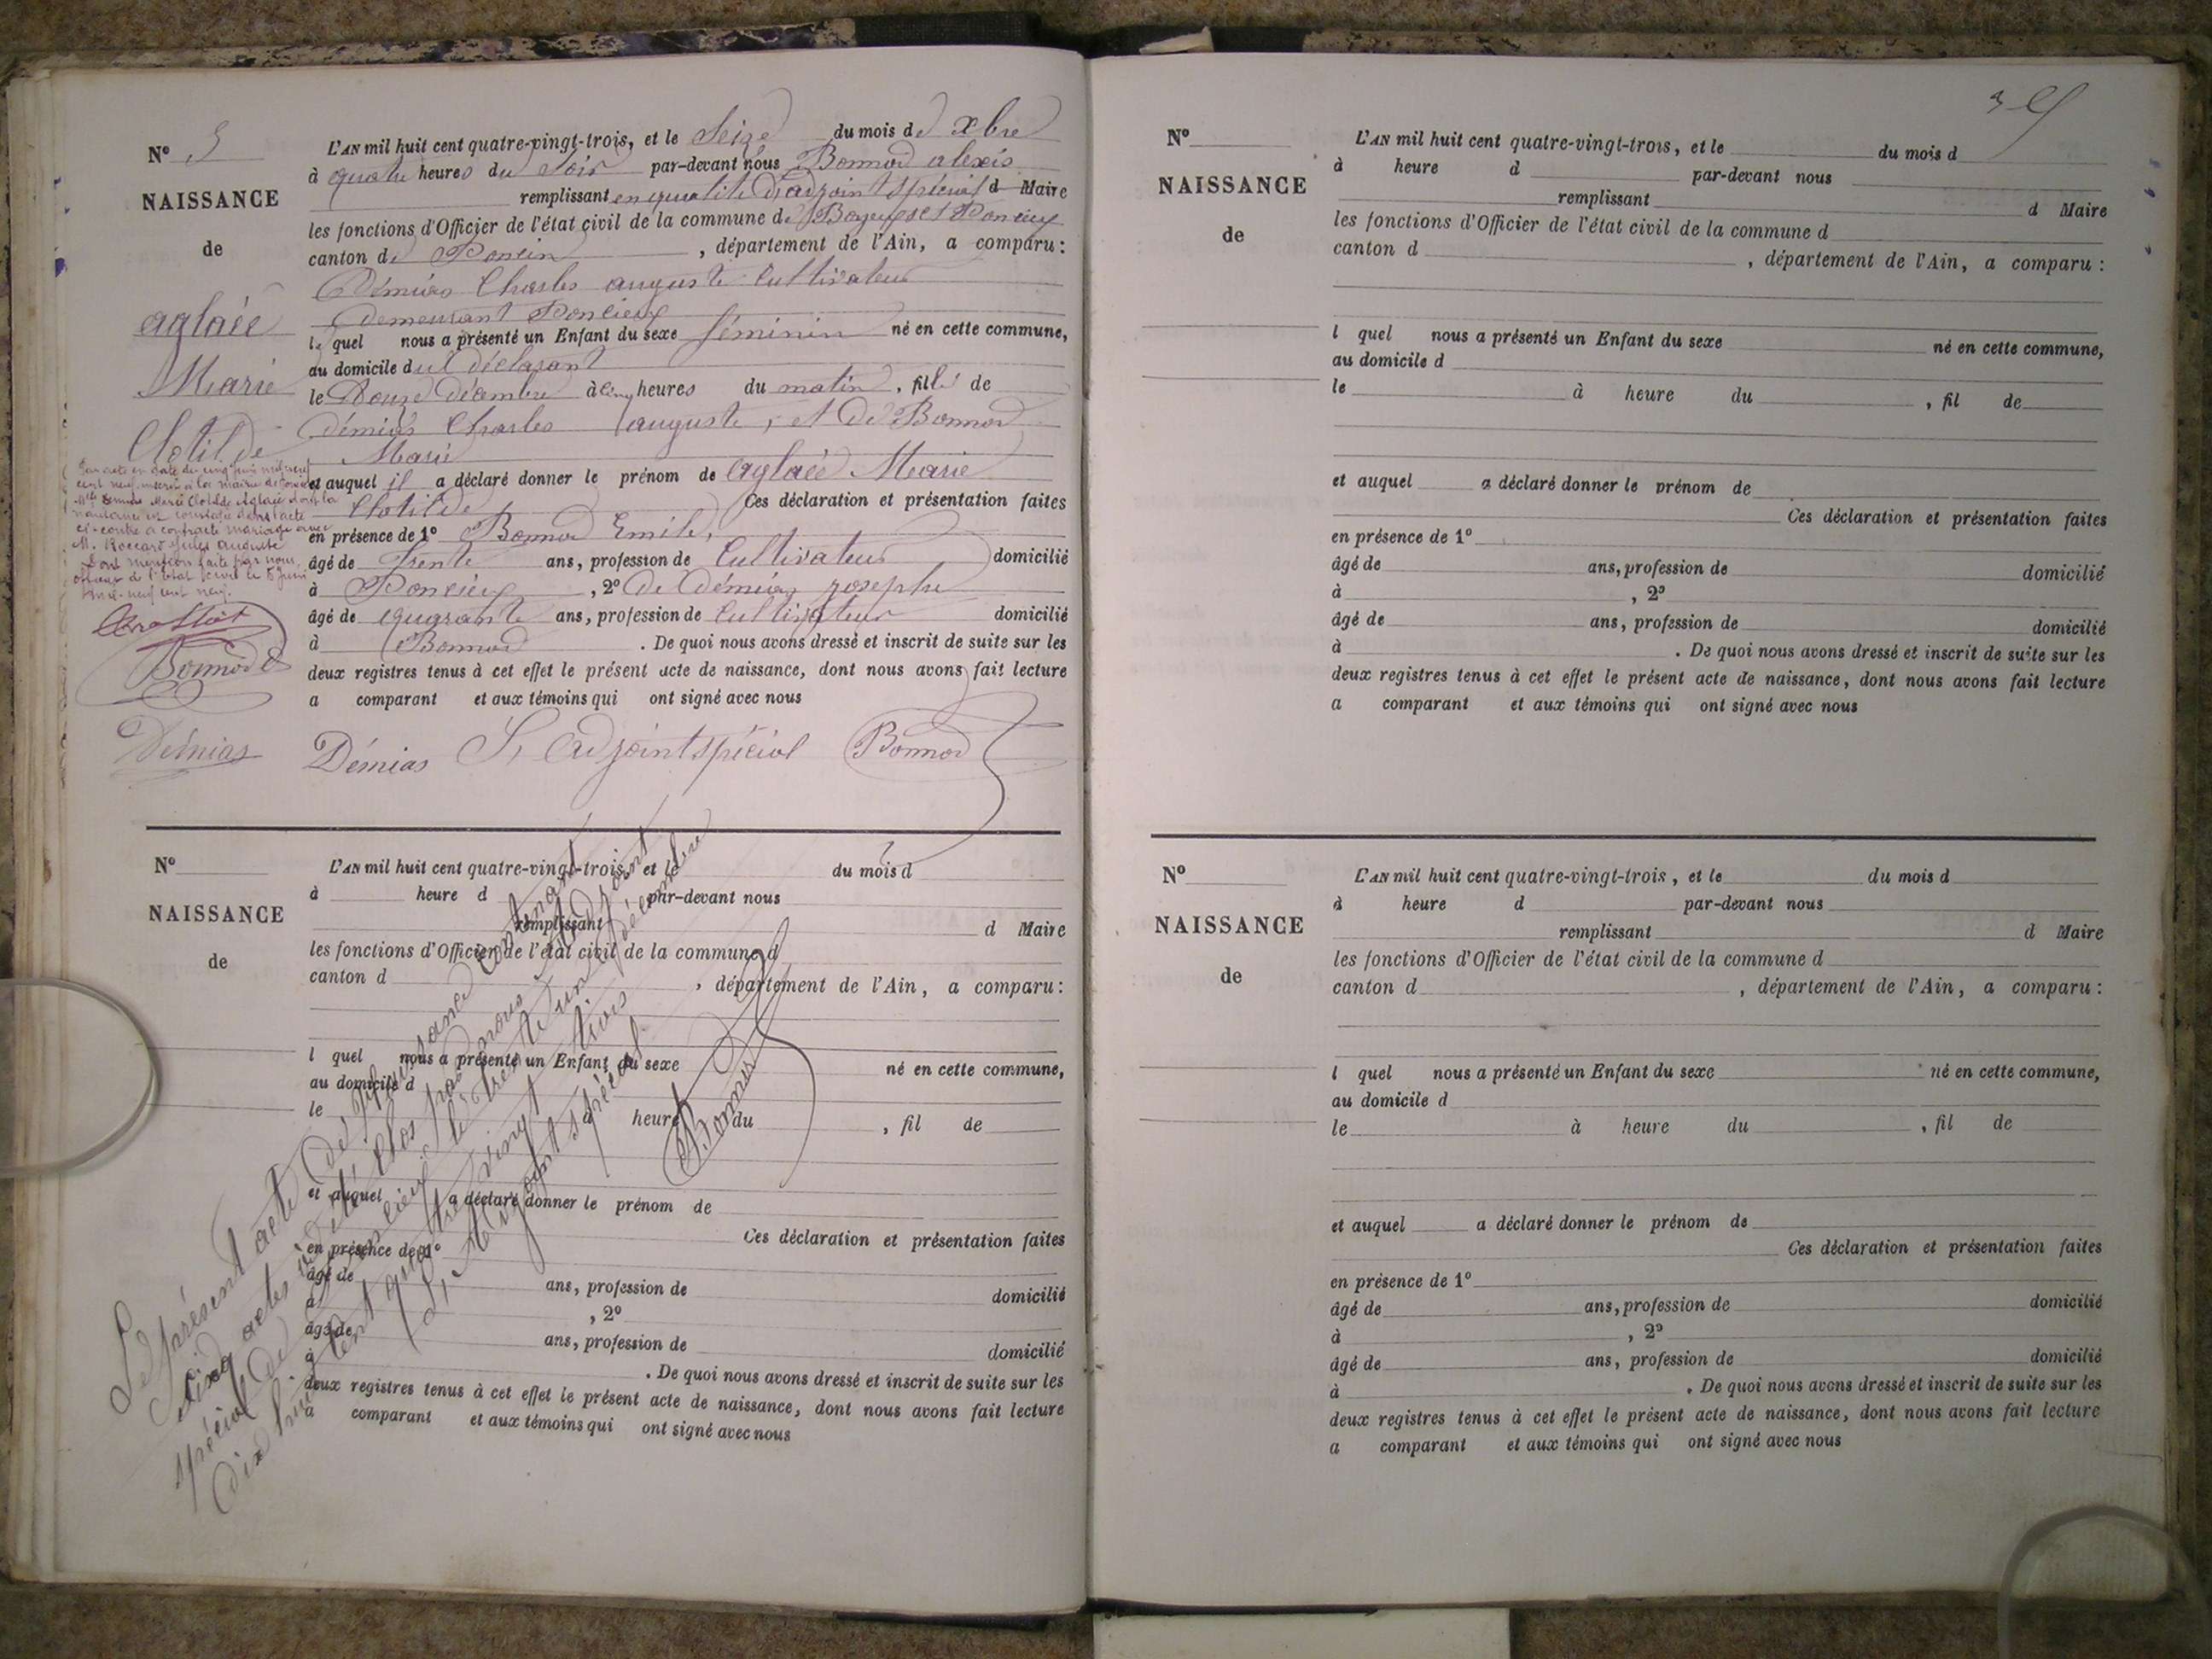 N° 5
NAISSANCE
de
aglaée
Marie
Clotilde
L'AN mil huit cent quatre-vingt-trois, et le Seize du mois de xbre
à quatre heures du soir par-devant nous Bonnod alexis
remplissant en qualité d'adjoint spécial d Maire
les fonctions d'Officier de l'état civil de la commune de Boyeux et Poncieux
canton de Poncin, département de l'Ain, a comparu :
Démias Charles auguste Cultivateur
demeurant Poncieux
lequel nous a présenté un Enfant du sexe féminin né en cette commune,
au domicile dud déclarant
le Douze décembre à cinq heures du matin, fille de
démias Charles auguste, et de Bonnod
Marie
et auquel il a déclaré donner le prénom de aglaée Marie
Clotilde Ces déclaration et présentation faites
en présence de 1° Bonnod Emile,
âgé de trente ans, profession de Cultivateur domicilié
à Poncieux, 2° de démias josephe
âgé de quarante ans, profession de Cultivateur domicilié
à Bonnod. De quoi nous avons dressé et inscrit de suite sur les
deux registres tenus à cet effet le présent acte de naissance, dont nous avons fait lecture
a comparant et aux témoins qui ont signé avec nous
Démias L'adjoint spécial Bonnod
Par acte en date du cinq juin mil neuf
cent neuf inscrit à la mairie de
Mlle Démias Marie Clotilde Aglaée dont la
naissance est constatée dans l'acte
ci-contre a contracté mariage avec
M. Boccard Jules Auguste
Dont mention faite par nous,
officier de l'état civil le 5 juin
mil-neuf cent neuf.
Bonnod E
Démias
N°
NAISSANCE
de
L'AN mil huit cent quatre-vingt-trois, et le du mois d
à heure d par-devant nous
remplissant d Maire
les fonctions d'Officier de l'état civil de la commune d
canton d , département de l'Ain, a comparu :
l quel nous a présenté un Enfant du sexe né en cette commune,
au domicile d
le à heure du , fil de
et auquel a déclaré donner le prénom de
Ces déclaration et présentation faites
en présence de 1°
âgé de ans, profession de domicilié
à , 2°
âgé de ans, profession de domicilié
à . De quoi nous avons dressé et inscrit de suite sur les
deux registres tenus à cet effet le présent acte de naissance, dont nous avons fait lecture
a comparant et aux témoins qui ont signé avec nous
Le présent acte de naissance contenant
cinq actes a été clos par nous adjoint
spécial de Poncieux le trente un décembre
dix huit cent quatre vingt trois
L'Adjoint spécial
Bonnod
N°
NAISSANCE
de
L'AN mil huit cent quatre-vingt-trois, et le du mois d
à heure d par-devant nous
remplissant d Maire
les fonctions d'Officier de l'état civil de la commune d
canton d , département de l'Ain, a comparu :
l quel nous a présenté un Enfant du sexe né en cette commune,
au domicile d
le à heure du , fil de
et auquel a déclaré donner le prénom de
Ces déclaration et présentation faites
en présence de 1°
âgé de ans, profession de domicilié
à , 2°
âgé de ans, profession de domicilié
à . De quoi nous avons dressé et inscrit de suite sur les
deux registres tenus à cet effet le présent acte de naissance, dont nous avons fait lecture
a comparant et aux témoins qui ont signé avec nous
N°
NAISSANCE
de
L'AN mil huit cent quatre-vingt-trois, et le du mois d
à heure d par-devant nous
remplissant d Maire
les fonctions d'Officier de l'état civil de la commune d
canton d , département de l'Ain, a comparu :
l quel nous a présenté un Enfant du sexe né en cette commune,
au domicile d
le à heure du , fil de
et auquel a déclaré donner le prénom de
Ces déclaration et présentation faites
en présence de 1°
âgé de ans, profession de domicilié
à , 2°
âgé de ans, profession de domicilié
à . De quoi nous avons dressé et inscrit de suite sur les
deux registres tenus à cet effet le présent acte de naissance, dont nous avons fait lecture
a comparant et aux témoins qui ont signé avec nous